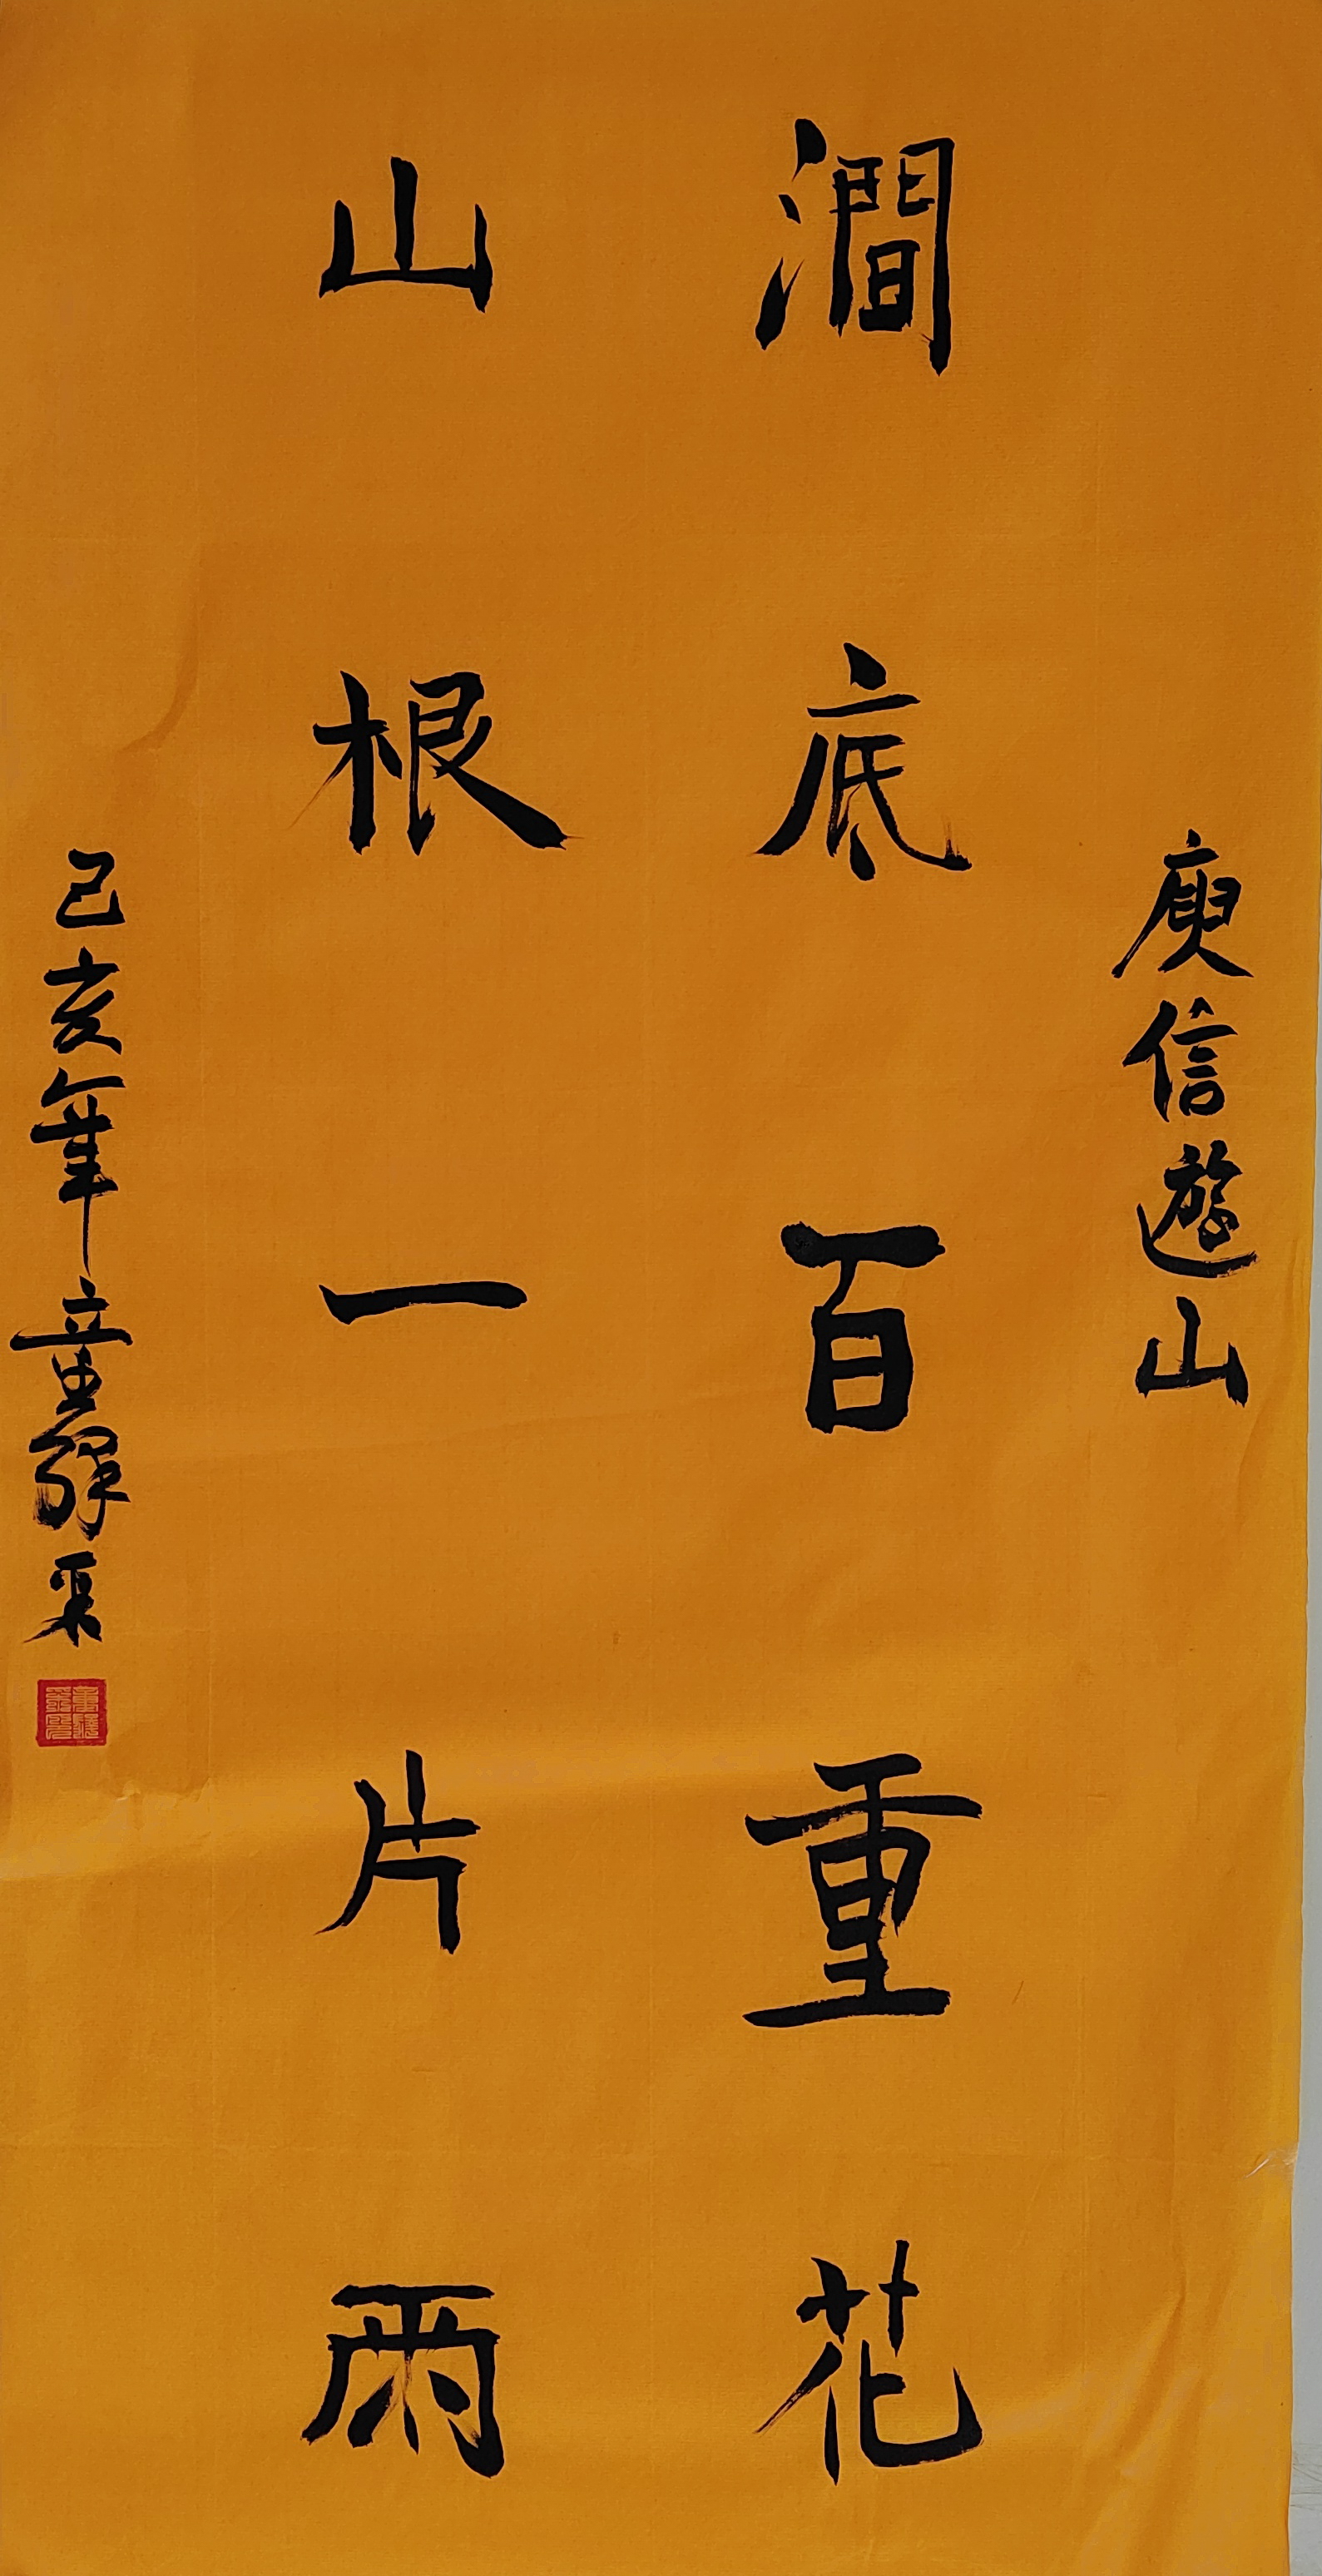 庾信遊山
澗底百重花
山根一片雨
己亥年童